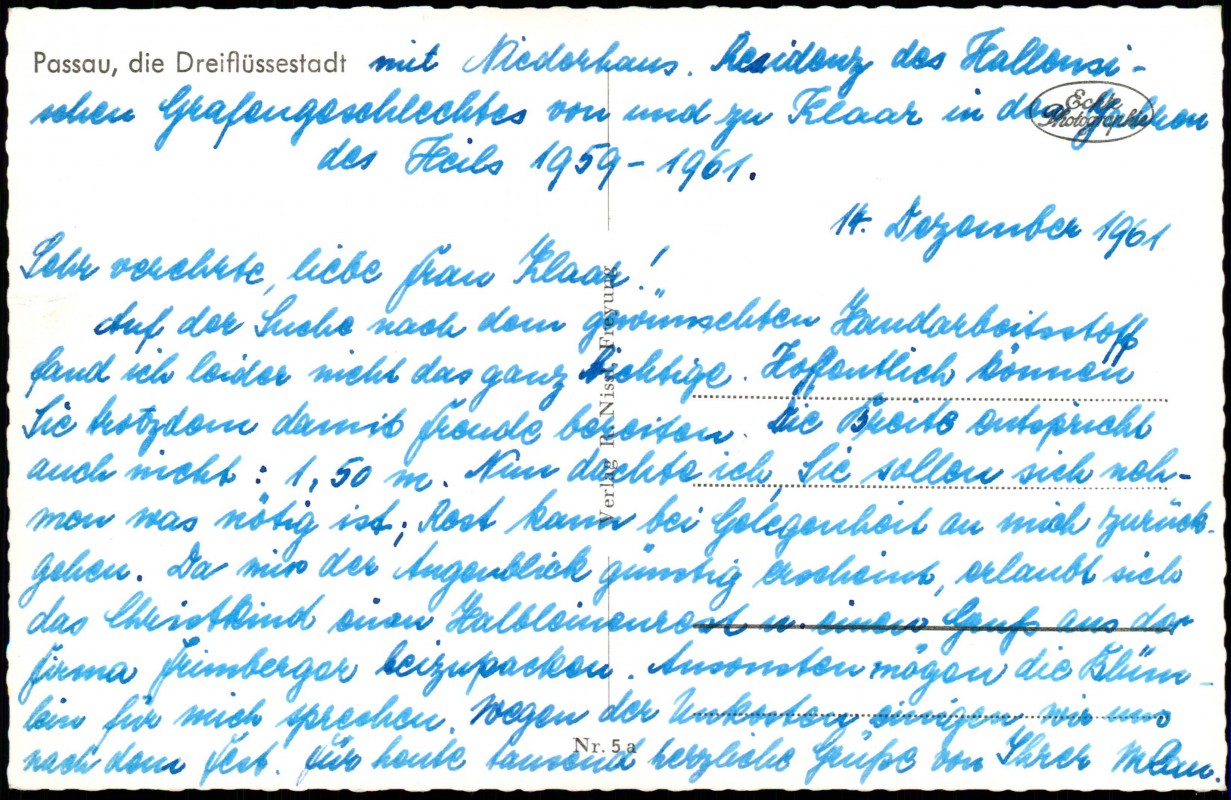 Passau, die Dreiflüssestadt mit Niederhaus. Residenz des Hallensi-
schen Grafengeschlechtes von und zu Klaar in den Jahren
Echte
Photographie
des Heils 1959-1961.
14. Dezember 1961
Sehr verehrte, liebe Frau Klaar!
Auf der Suche nach dem gewünschten Handarbeitsstoff
fand ich leider nicht das ganz Richtige. Hoffentlich können
Sie trotzdem damit Freude bereiten. Die Breite entspricht
auch nicht: 1,50 m. Nun dachte ich, Sie sollen sich neh-
men was nötig ist; Rest kann bei Gelegenheit an mich zurück-
gehen. Da mir der Augenblick günstig erscheint, erlaubt sich
das Christkind einen Halbleinenrest u. einen Gruß aus der
Firma Frimberger beizupacken. Ansonsten mögen die Blüm-
lein für mich sprechen. Wegen der Unkosten einigen wir uns
nach dem Fest. Für heute tausend herzliche Grüße von Ihrer
Verlag R. Nissl, Freyung
Nr. 5a